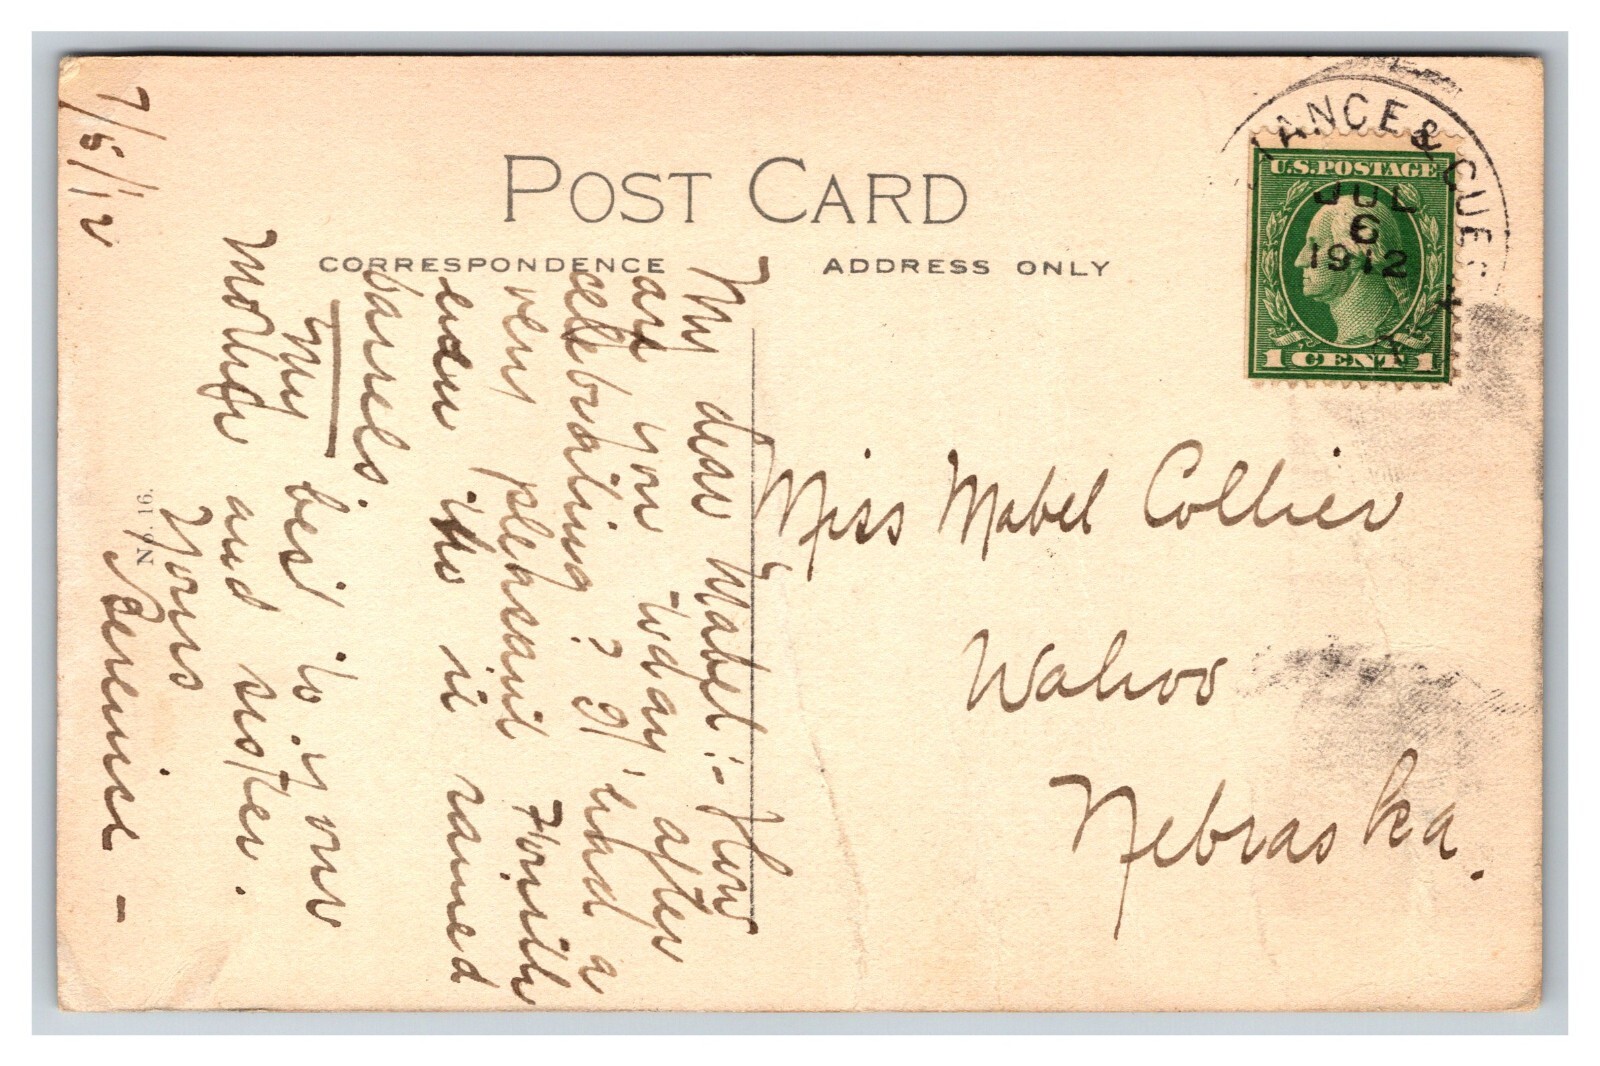 POST CARD
CORRESPONDENCE
ADDRESS ONLY
7/5/12
My dear Mabel:- How
are you today after
celebrating? I had a
very pleasant Fourth
even tho it rained
barrels.
My best to your
Mother and sister.
Yours
Berenice -
No. 16.
Miss Mabel Collier
Wahoo
Nebraska.
IANCE & GUE
JUL
6
1912
U.S. POSTAGE
1 CENT 1